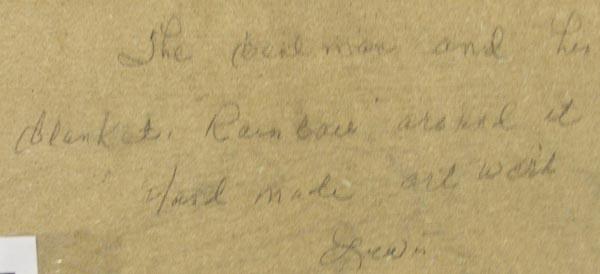 The man and his
Blanket. Rainbow around it
Hand made art work